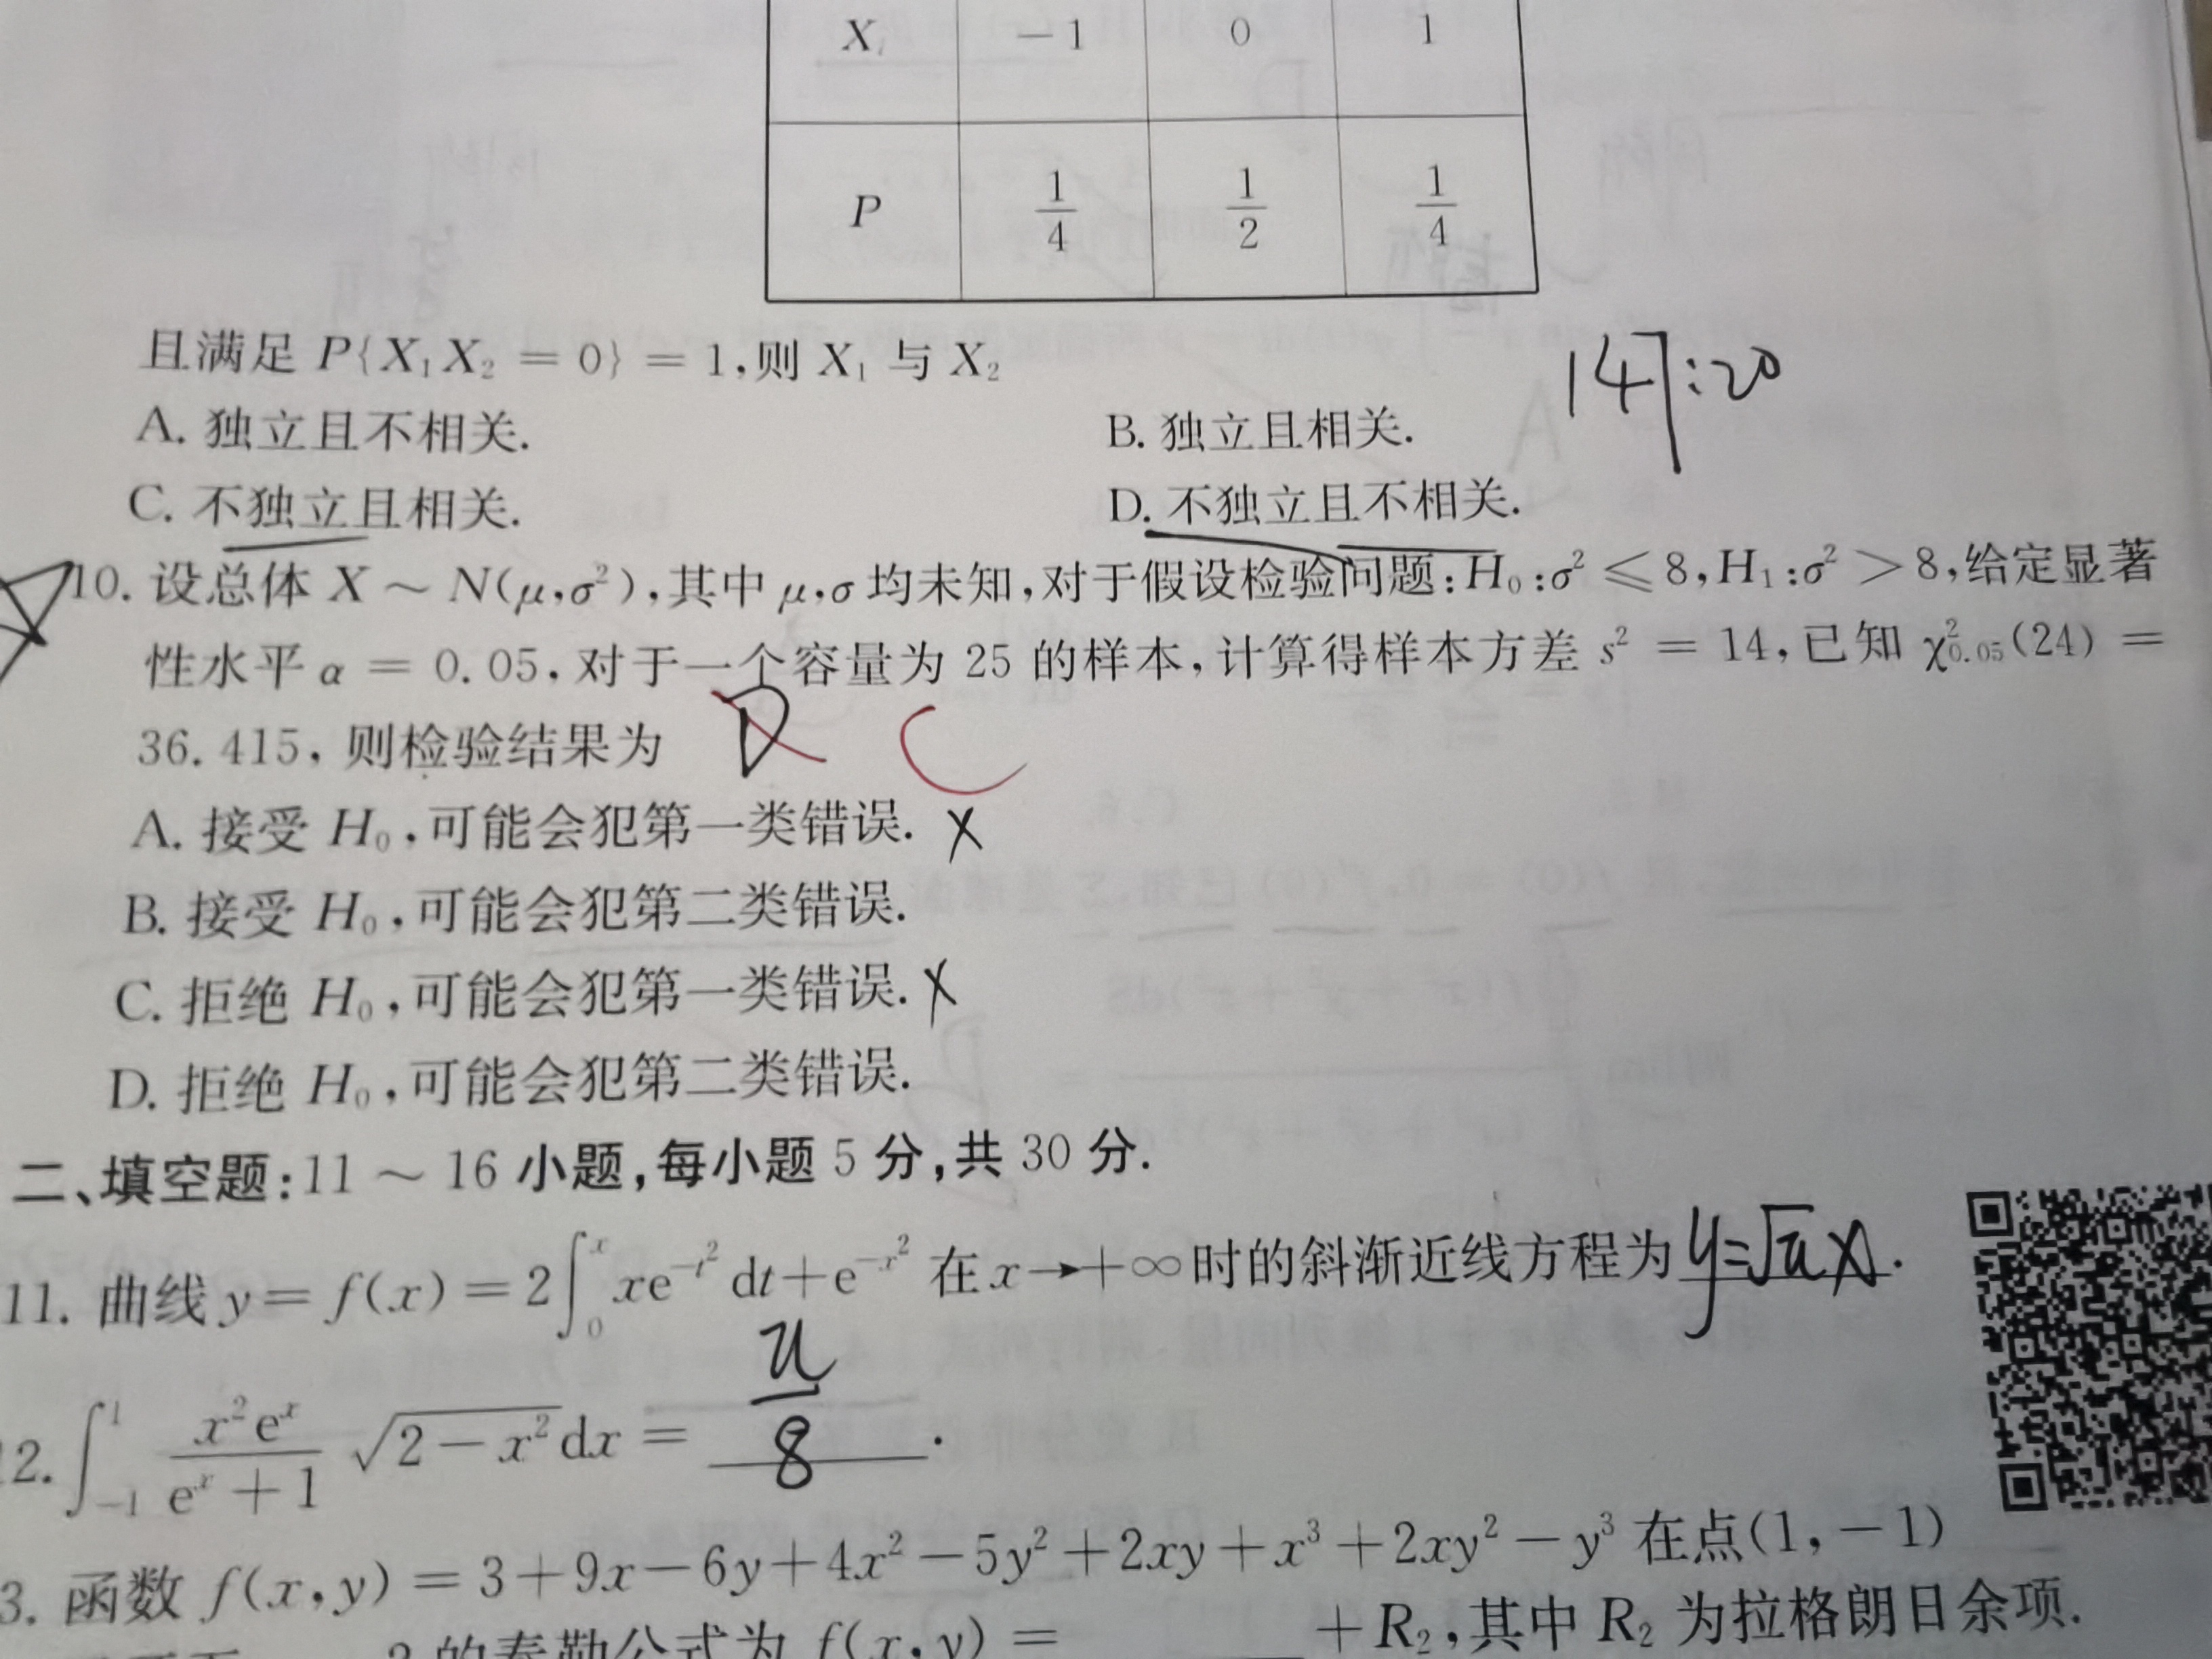 X_i -1 0 1
P 1/4 1/2 1/4
且满足 P{X₁X₂ = 0} = 1,则 X₁ 与 X₂
147:20
A. 独立且不相关. B. 独立且相关.
C. 不独立且相关. D. 不独立且不相关.
10. 设总体 X ~ N(μ,σ²),其中 μ,σ 均未知,对于假设检验问题:H₀:σ² ≤ 8,H₁:σ² > 8,给定显著
性水平 α = 0.05,对于一个容量为 25 的样本,计算得样本方差 s² = 14,已知 χ²₀.₀₅(24) =
36.415, 则检验结果为 D C
A. 接受 H₀,可能会犯第一类错误. X
B. 接受 H₀,可能会犯第二类错误.
C. 拒绝 H₀,可能会犯第一类错误. X
D. 拒绝 H₀,可能会犯第二类错误.
二、填空题:11 ~ 16 小题,每小题 5 分,共 30 分.
11. 曲线 y = f(x) = 2∫₀ˣ xe^(-t²) dt + e^(-x²) 在 x→+∞ 时的斜渐近线方程为 y=√π x.
2. ∫₋₁¹ (x²eˣ)/(eˣ + 1) √(2 - x²) dx = π/8.
3. 函数 f(x,y) = 3+9x-6y+4x²-5y²+2xy+x³+2xy²-y³ 在点(1,-1)
2 的泰勒公式为 f(x,y) = +R₂,其中 R₂ 为拉格朗日余项.